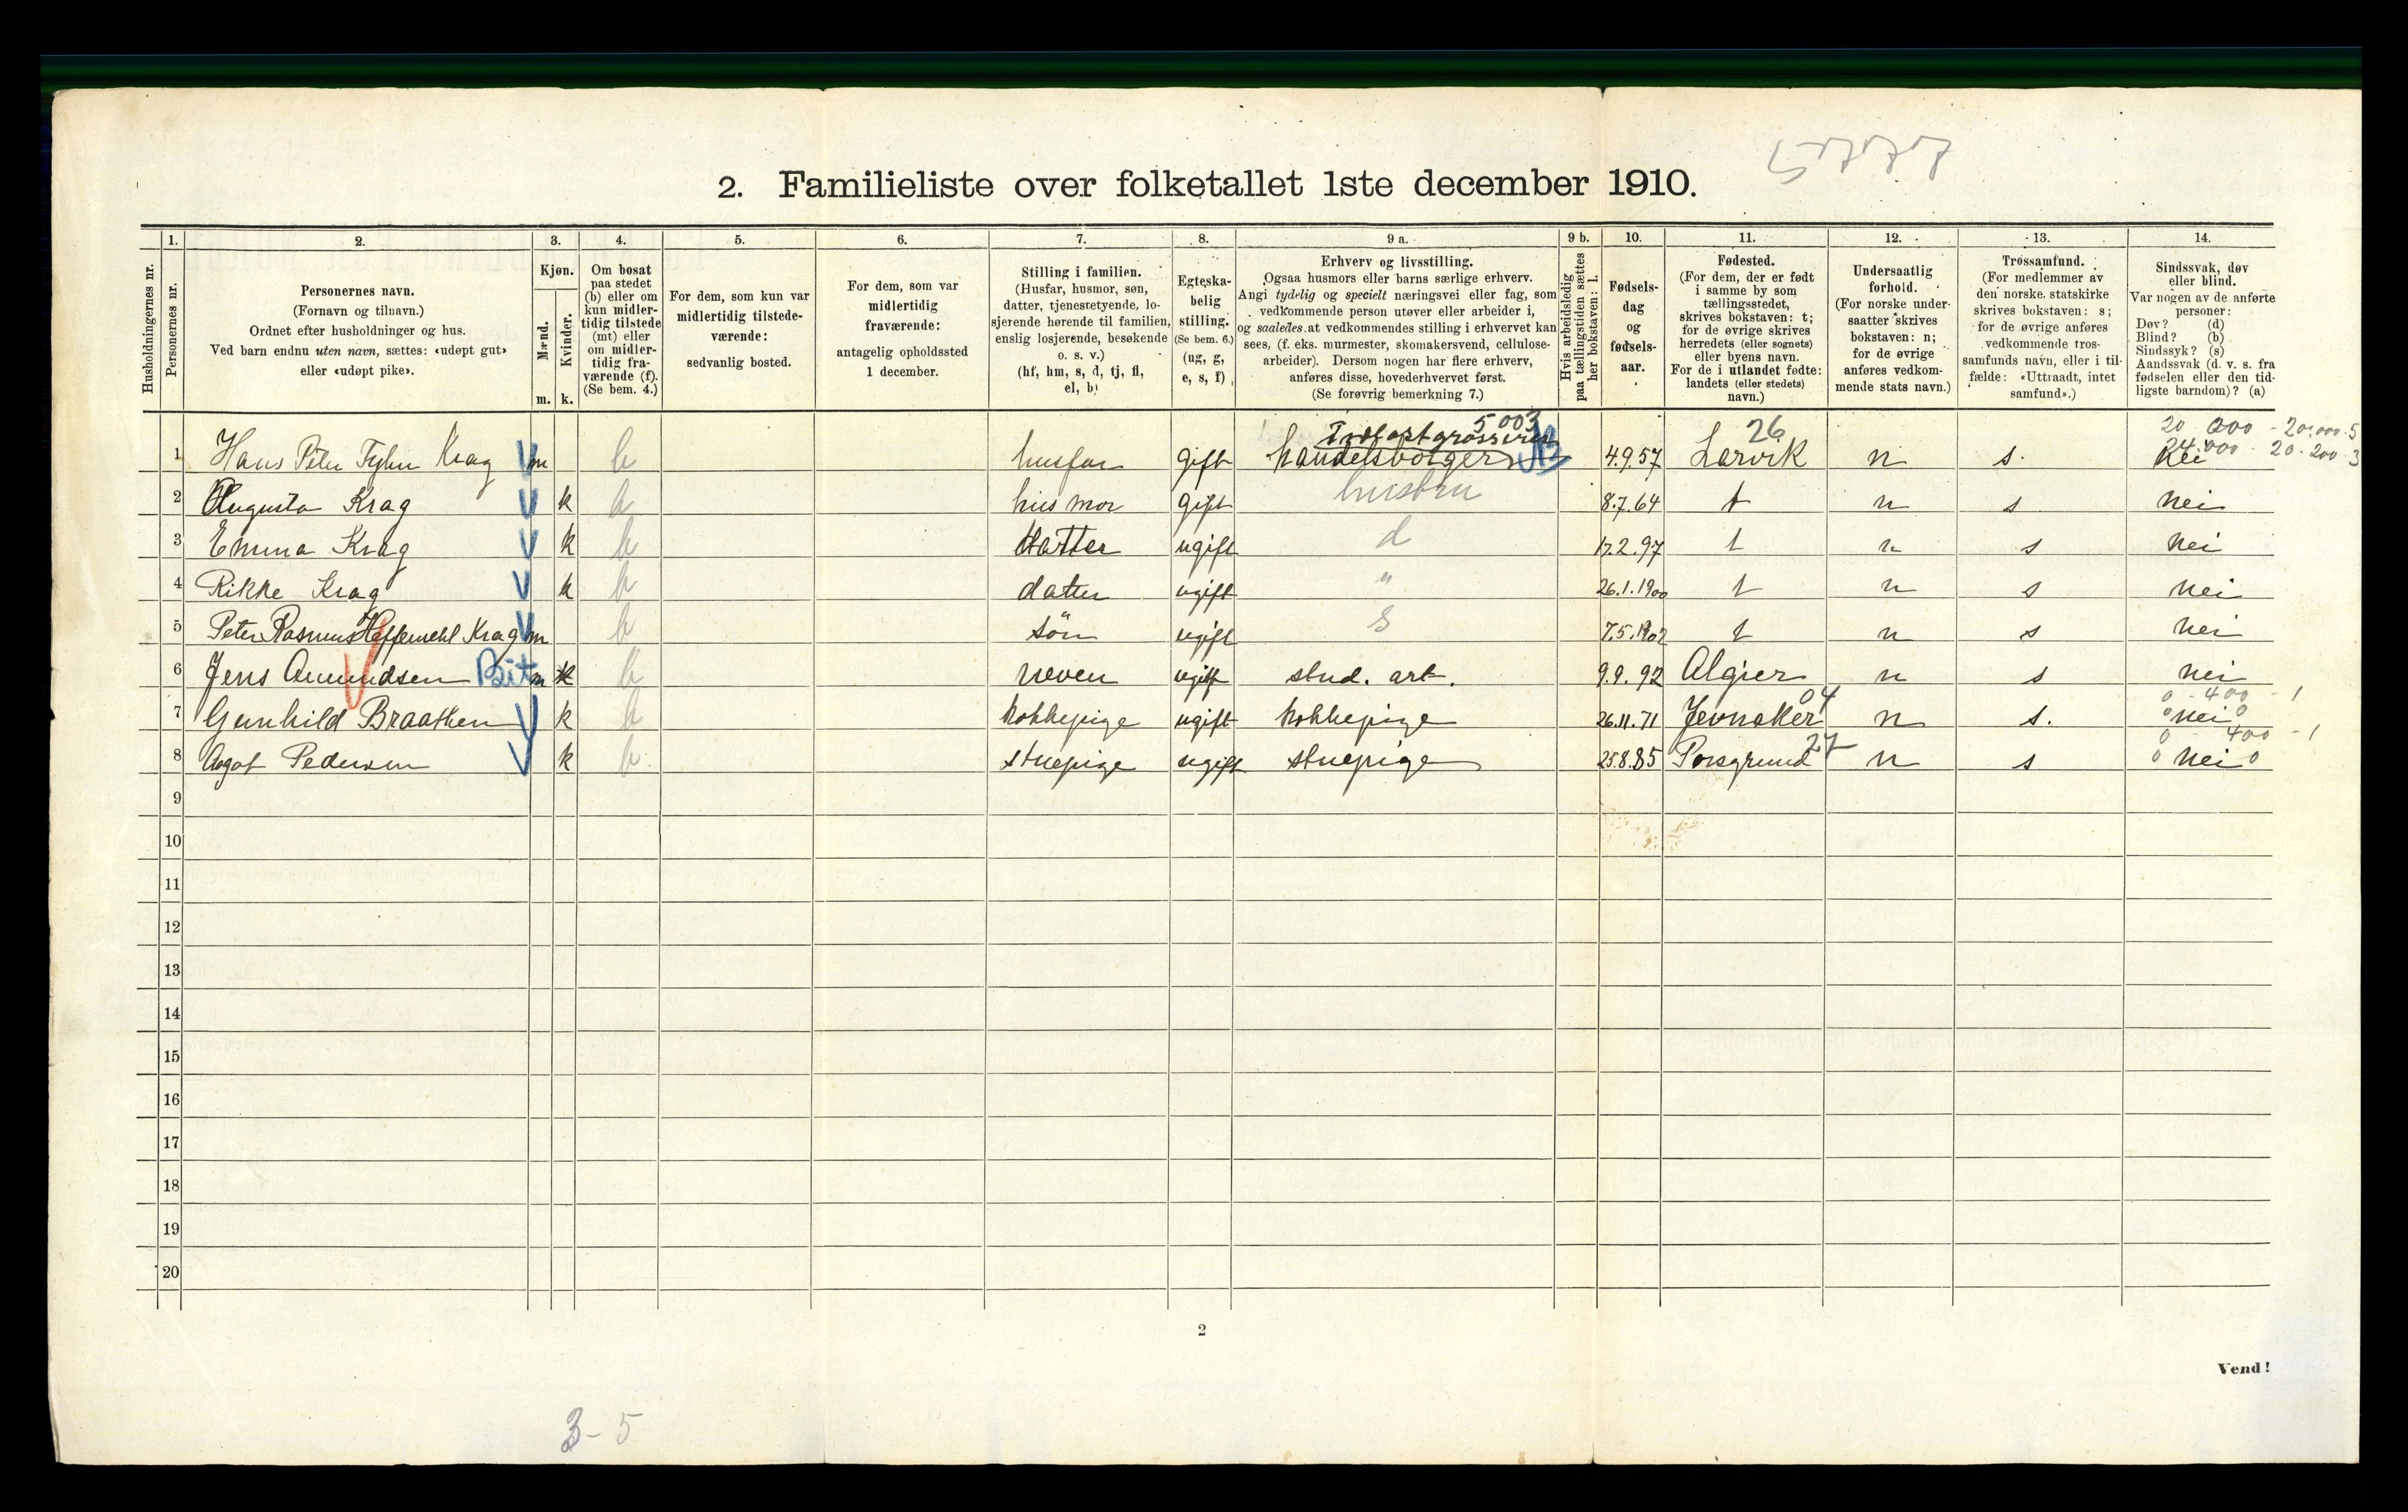 5777
2. Familieliste over folketallet 1ste december 1910.
Husholdningernes nr.
1. Personernes nr.
2. Personernes navn.
(Fornavn og tilnavn.)
Ordnet efter husholdninger og hus.
Ved barn endnu uten navn, sættes: «udøpt gut»
eller «udøpt pike».
3. Kjøn.
Mænd. m.
Kvinder. k.
4. Om bosat
paa stedet
(b) eller om
kun midler-
tidig tilstede
(mt) eller
om midler-
tidig fra-
værende (f).
(Se bem. 4.)
5. For dem, som kun var
midlertidig tilstede-
værende:
sedvanlig bosted.
6. For dem, som var
midlertidig
fraværende:
antagelig opholdssted
1 december.
7. Stilling i familien.
(Husfar, husmor, søn,
datter, tjenestetyende, lo-
sjerende hørende til familien,
enslig losjerende, besøkende
o. s. v.)
(hf, hm, s, d, tj, fl,
el, b)
8. Egteska-
belig
stilling.
(Se bem. 6.)
(ug, g,
e, s, f)
9 a. Erhverv og livsstilling.
Ogsaa husmors eller barns særlige erhverv.
Angi tydelig og specielt næringsvei eller fag, som
vedkommende person utøver eller arbeider i,
og saaledes at vedkommendes stilling i erhvervet kan
sees, (f. eks. murmester, skomakersvend, cellulose-
arbeider). Dersom nogen har flere erhverv,
anføres disse, hovederhvervet først.
(Se forøvrig bemerkning 7.)
9 b. Hvis arbeidsledig
paa tællingstiden sættes
her bokstaven: l.
10. Fødsels-
dag
og
fødsels-
aar.
11. Fødested.
(For dem, der er født
i samme by som
tællingsstedet,
skrives bokstaven: t;
for de øvrige skrives
herredets (eller sognets)
eller byens navn.
For de i utlandet fødte:
landets (eller stedets)
navn.)
12. Undersaatlig
forhold.
(For norske under-
saatter skrives
bokstaven: n;
for de øvrige
anføres vedkom-
mende stats navn.)
13. Trossamfund.
(For medlemmer av
den norske statskirke
skrives bokstaven: s;
for de øvrige anføres
vedkommende tros-
samfunds navn, eller i til-
fælde: «Uttraadt, intet
samfund».)
14. Sindssvak, døv
eller blind.
Var nogen av de anførte
personer:
Døv? (d)
Blind? (b)
Sindssyk? (s)
Aandssvak (d. v. s. fra
fødselen eller den tid-
ligste barndom)? (a)
5003 26 20 000 - 20.000.5
24.000 - 20.200 3
1 Hans Peter Krag m b husfar gift handelsborger 4.9.57 Larvik n s. Nei
2 Augusta Krag k b husmor gift hustru 8.7.64 t n s nei
3 Emma Krag k b datter ugift d 17.2.97 t n s nei
4 Rikke Krag k b datter ugift " 26.1.1900 t n s nei
5 Peter Rasmus Heffermehl Krag m b søn ugift s 7.5.1902 t n s nei
6 Jens Amundsen m k b neven ugift stud. art. 9.9.92 Algier n s nei
04 0 - 400 - 1
7 Gunhild Braathen k b kokkepige ugift kokkepige 26.11.71 Jevnaker n s. 0 nei 0
27 0 - 400 - 1
8 Aagot Pedersen k b stuepige ugift stuepige 25.8.85 Porsgrund n s 0 nei 0
9
10
11
12
13
14
15
16
17
18
19
20
2
Vend!
3-5